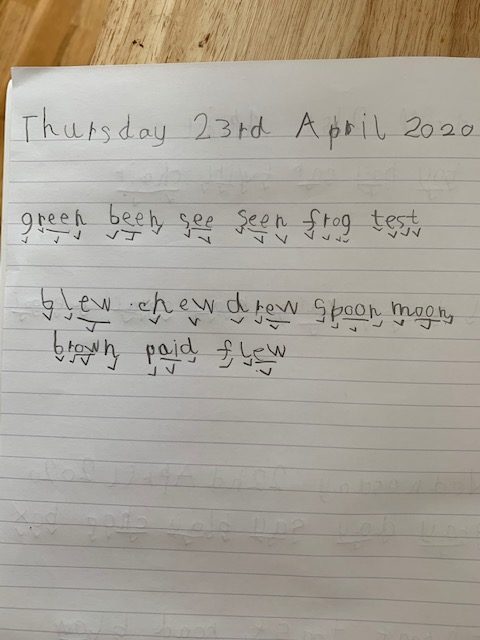 Thursday 23rd April 2020
green been see seen frog test
blew chew drew spoon moon
brown paid flew